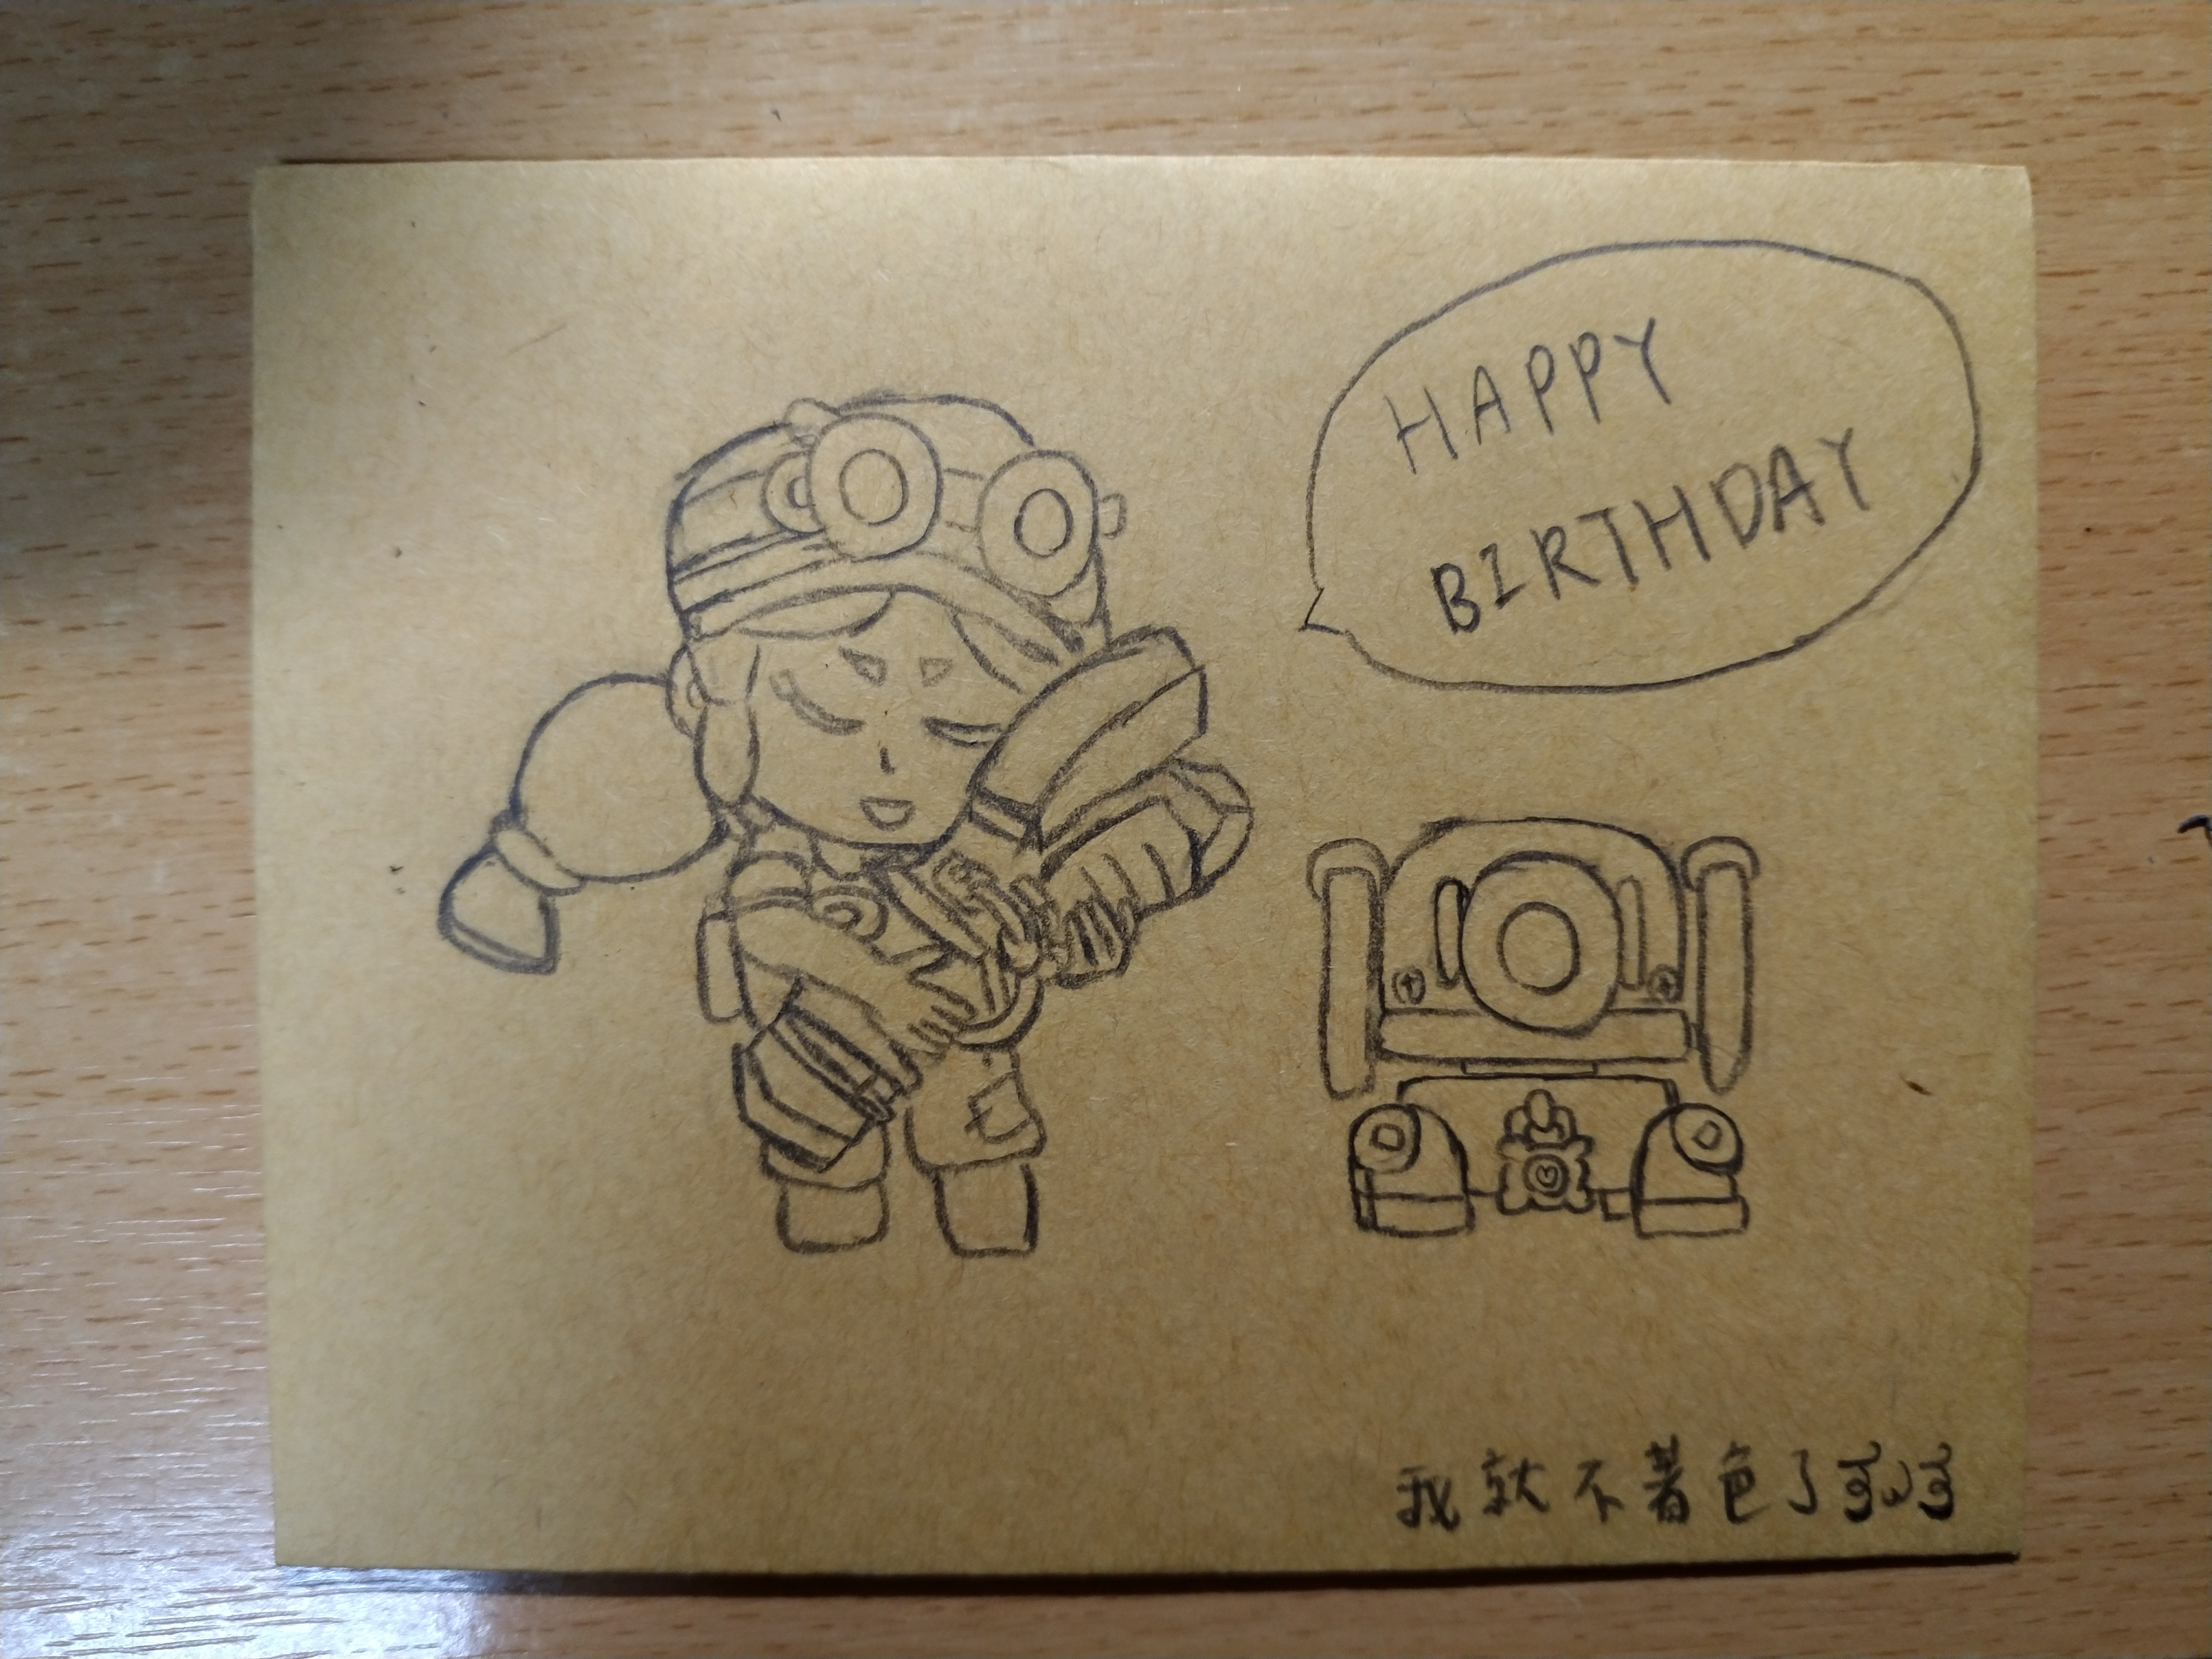 HAPPY
BIRTHDAY
我就不着色了